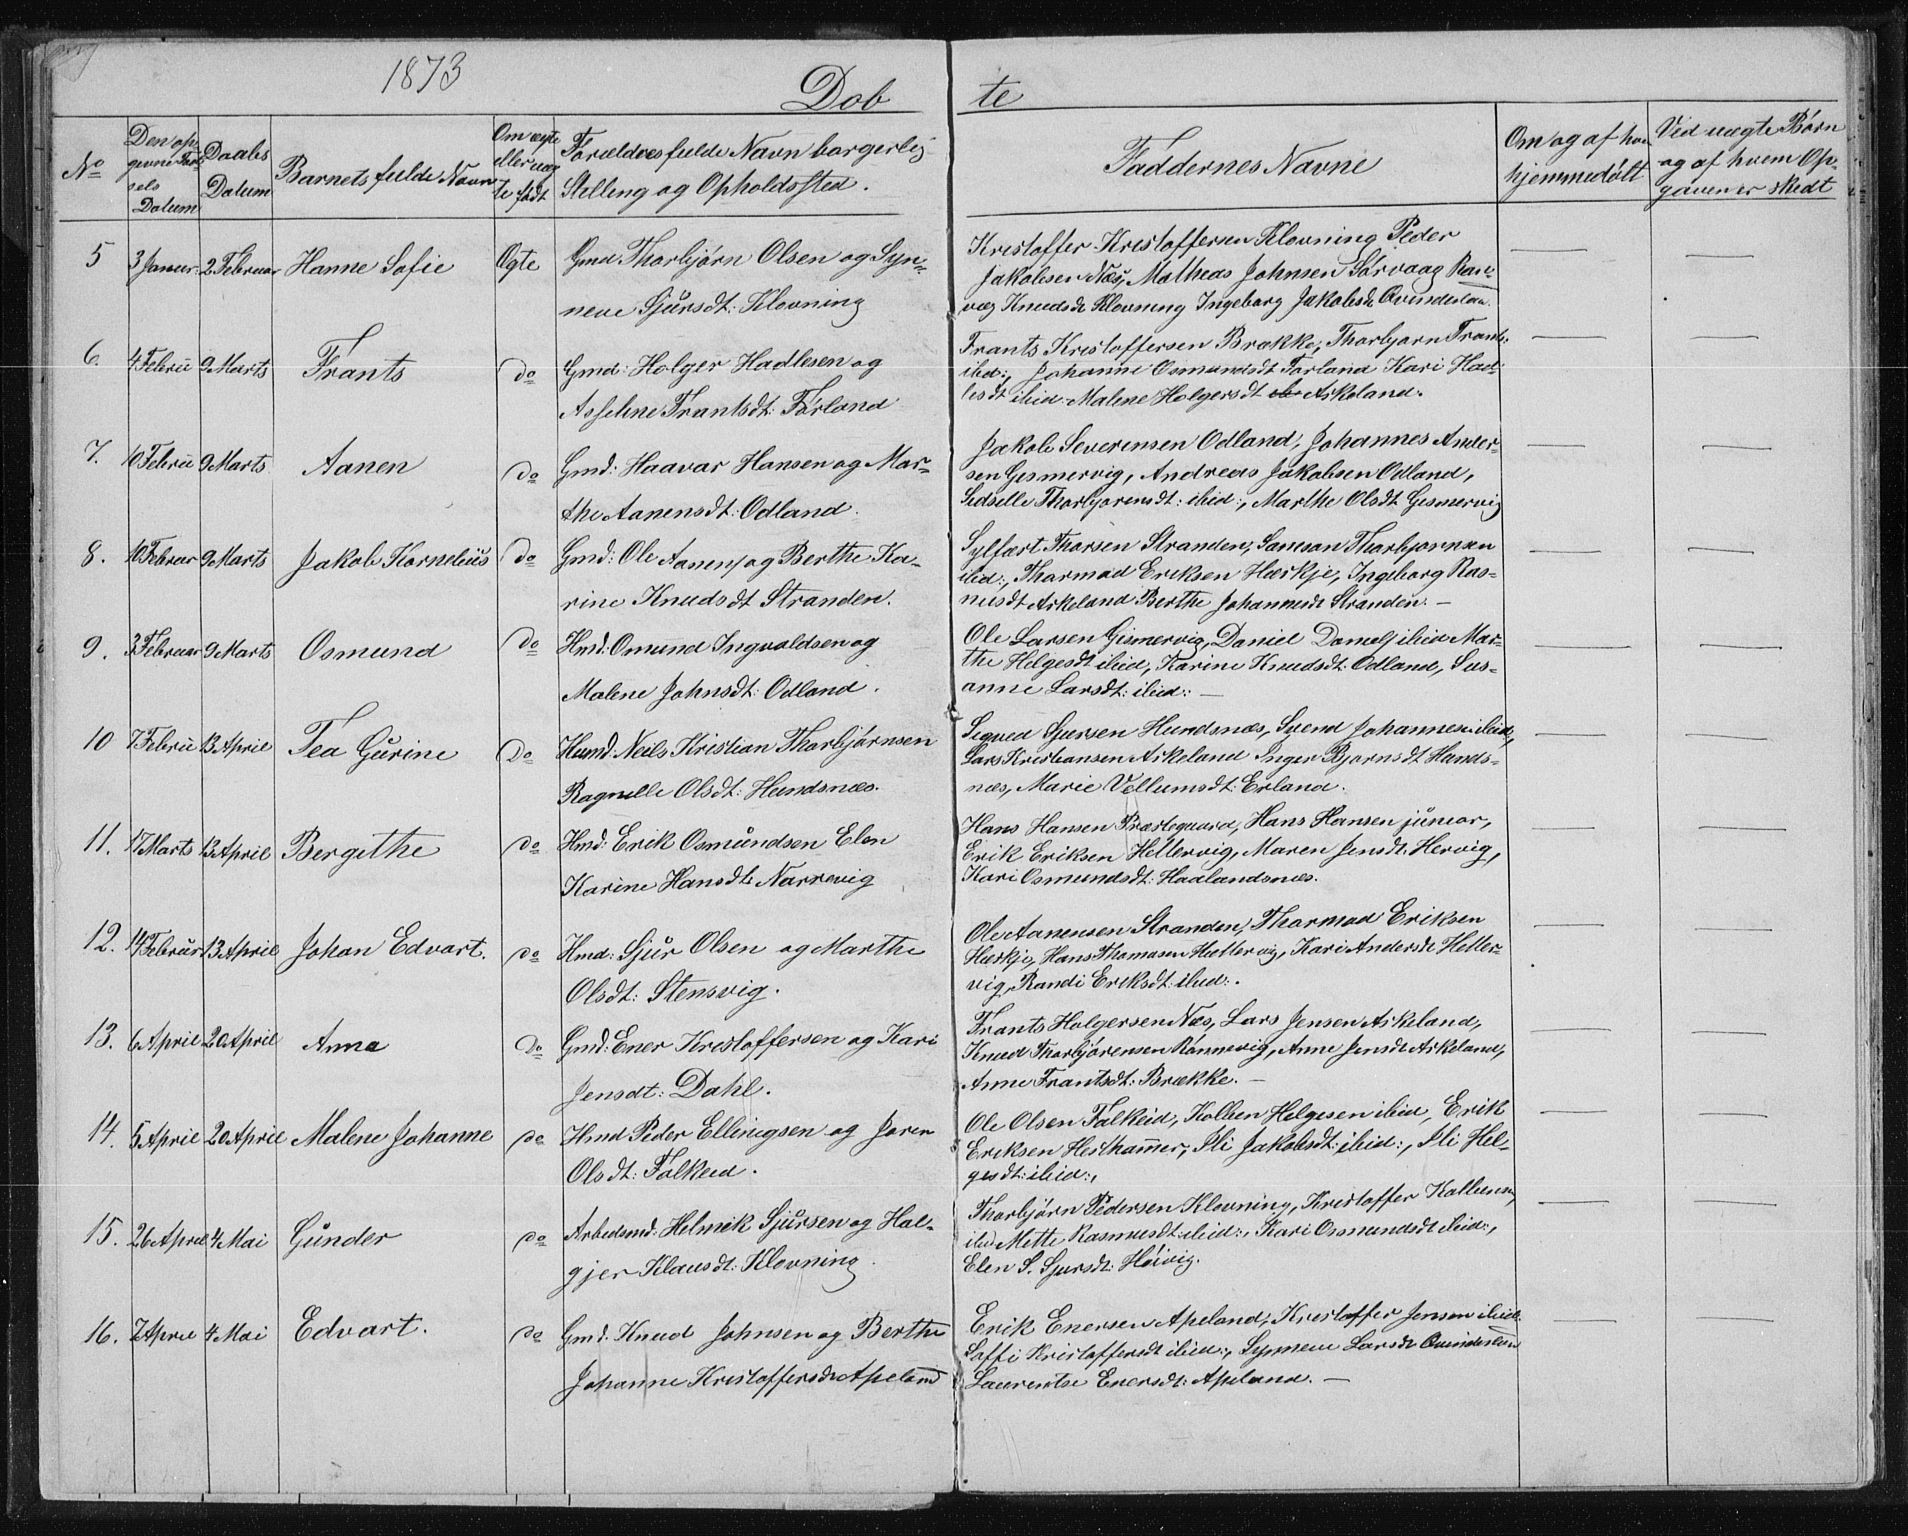 1873
Døbte
No
Den opgivne Fødsels Datum
Daabs Datum
Barnets fulde Navn
Om ægte eller uægte født
Forældres fulde Navn borgerlig Stelling og Opholdssted.
Faddernes Navne
Om og af hvem hjemmedøbt
Ved uægte Børn og af hvem Opgaven er skedt
5 3 Januar 2 Februar Hanne Sofie Ægte Gmd Thorbjørn Olsen og Syn-
neve Sjursdt: Klovning
Kristoffer Kristoffersen Klovning Peder
Jakobsen Næs, Matheas Johnsen Sørvaag Ran-
veg Knudsdt Klovning Ingeborg Jakobsdt Qvindeslan.
6. 4 Febru 9 Marts Frants do Gmd: Holger Hadlesen og
Asseline Frantsdt: Førland
Frants Kristoffersen Brække, Thorbjørn Frants:
ibid:, Johanne Osmundsdt Førland Kari Had-
lesdt ibid: Malene Holgersdt Askeland.
7. 10 Febru 9 Marts Aanen do Gmd: Haavar Hansen og Mar-
the Aanensdt: Odland.
Jakob Severensen Odland, Johannes Ander-
sen Gismervig, Andreas Jakobsen Odland,
Sedselle Thorbjørensdt: ibid:, Marthe Olsdt Gismervig
8. 10 Februar 9 Marts Jakob Kornelius do Gmd: Ole Aanens og Berthe Ka-
rine Knudsdt Stranden.
Sylfæst Thorsen Stranden, Samson Thorbjørnsen
ibid:, Thormod Eriksen Hæskje, Ingeborg Ras-
musdt Askeland Berthe Johannesdt Stranden. —
9. 3 Februar 9 Marts Osmund do Hmd: Omund Ingvaldsen og
Malene Johnsdt: Odland.
Ole Larsen Gismervig, Daniel Daniels ibid Mar-
the Helgesdt ibid, Karine Knudsdt: Odland, Sus-
anne Larsdt: ibid: —
10 7 Febru 13 April Tea Gurine Do Husmd: Neils Kristian Thorbjørnsen
Ragnille Olsdt: Hundsnæs.
Sigved Sjursen Hundsnæs, Svend Johannesen ibid,
Lars Kristiansen Askeland Inger Bjørnsdt Hunds-
næs, Marie Vellumsdt: Erland.
11. 17 Marts 13 April Bergithe do Hmd: Erik Osmundsen Elen
Karine Hansdt: Narrevig
Hans Hansen Præstegaard, Hans Hansen junior,
Erik Eriksen Hettervig, Maren Jensdt: Hervig,
Kari Osmundsdt: Hadlandsnæs.
12. 14 Februar 13 April Johan Edvart. do Hmd: Sjur Olsen og Marthe
Olsdt: Stensvig.
Ole Aanensen Stranden, Thormod Eriksen
Hæskje, Hans Thomasen Hettervig, Kari Andersdt Hetter-
vig, Randi Eriksdt: ibid:.
13. 6 April 20 April Anna Do Gmd: Ener Kristoffersen og Kari
Jensdt: Dahl.
Frants Holgersen Næs, Lars Jensen Askeland,
Knud Thorbjørensen Rønnevig, Anne Jensdt Askeland,
Anne Frantsdt: Brække. —
14. 5 April 20 April Malene Johanne do Hmd Peder Ellingsen og Joren
Olsdt: Falkeid.
Ole Olsen Falkeid, Kolben Helgesen ibid, Erik
Eriksen Hesthammer, Sli Jakobsdt: ibid:, Sli Hel-
gesdt: ibid:,
15. 26 April 4 Mai Gunder do Arbedsmd: Helmik Sjursen og Hal-
gjer Klausdt: Klovning.
Thorbjørn Pedersen Klovning, Kristoffer Kolbensen,
ibid Mette Rasmusdt: ibid:, Kari Osmundsdt ibid:,
Elen S. Sjursdt: Høivig.
16. 7 April 4 Mai Edvart. do Gmd: Knud Johnsen og Berthe
Johanne Kristoffersdt Apeland
Erik Enersen Apeland, Kristoffer Jensen ibid.
Soffi Kristoffersdt ibid:, Synneve Larsdt Qvindeslan
Laurentse Enersdt: Apeland. —